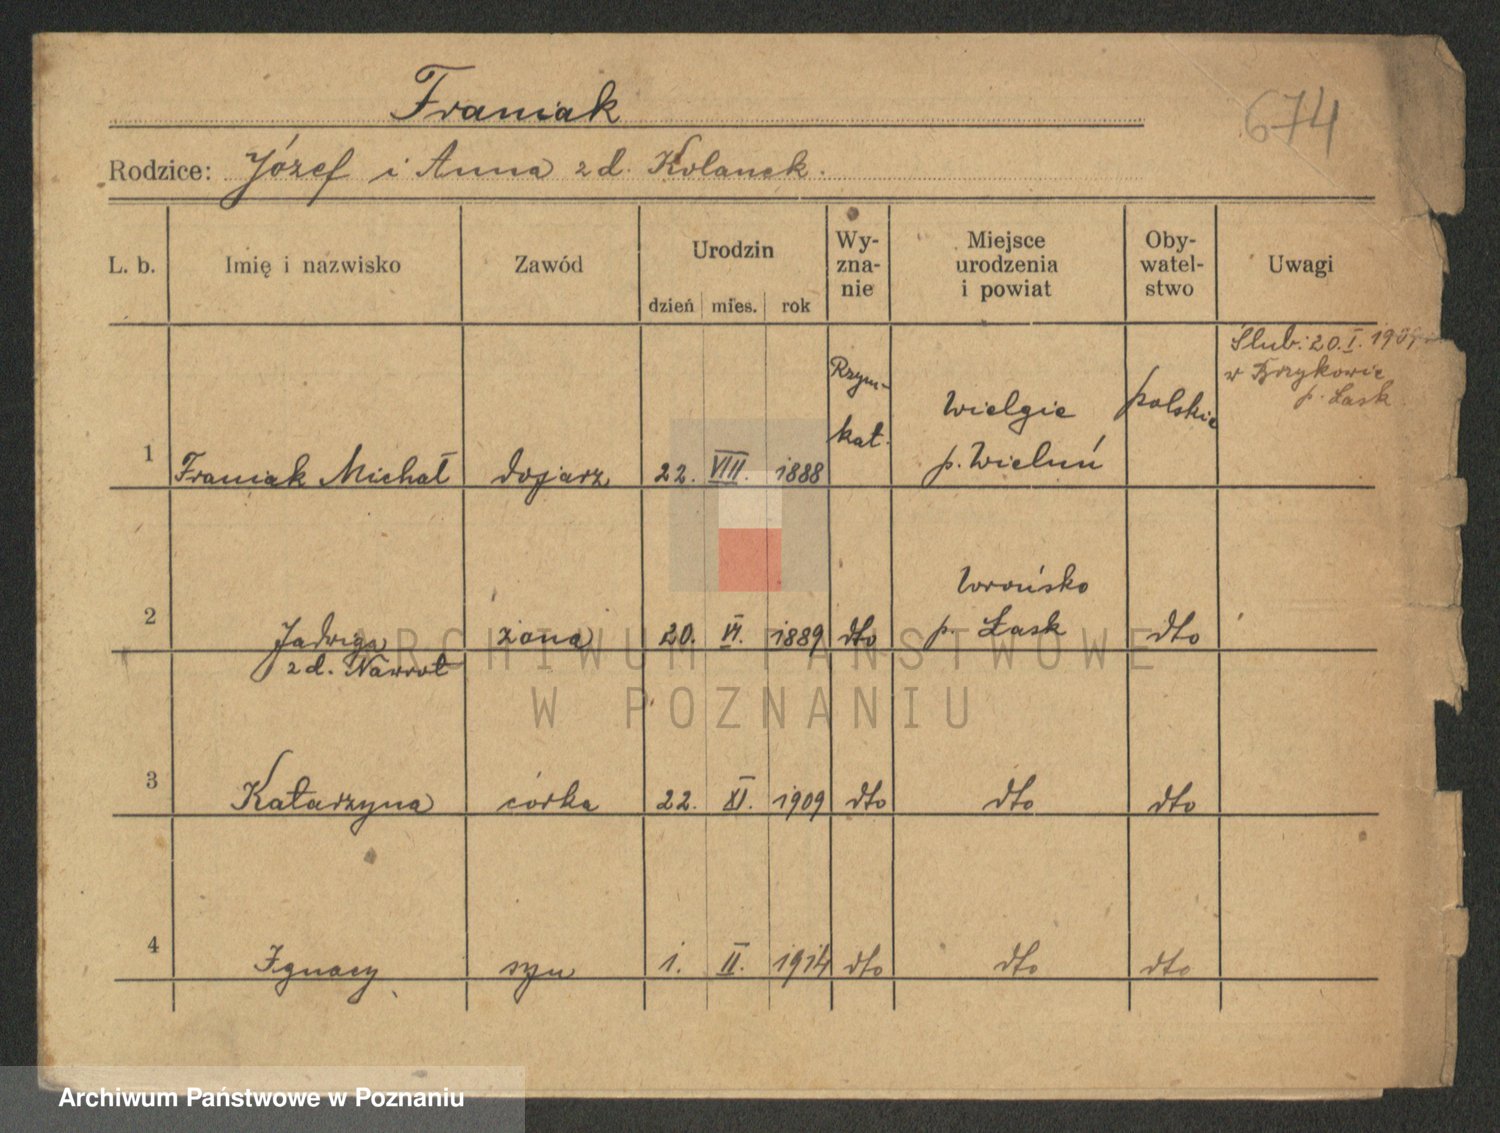 Franiak
674
Rodzice: Józef i Anna zd. Kolanek.
L. b. Imię i nazwisko Zawód Urodzin dzień mies. rok Wy-zna-nie Miejsce urodzenia i powiat Oby-watel-stwo Uwagi
Ślub: 20. I. 1909
w
p. Łask
Rzym-
kat.
Wielgie
polskie
1 Franiak Michał dojarz 22. VIII. 1888 p. Wieluń
Wrońsko
2 Jadwiga żona 20. VI. 1889 dto p. Łask dto
zd. Nawrot
3 Katarzyna córka 22. XI. 1909 dto dto dto
4 Ignacy syn 1. II. 1914 dto dto dto
ARCHIWUM PAŃSTWOWE
W POZNANIU
Archiwum Państwowe w Poznaniu